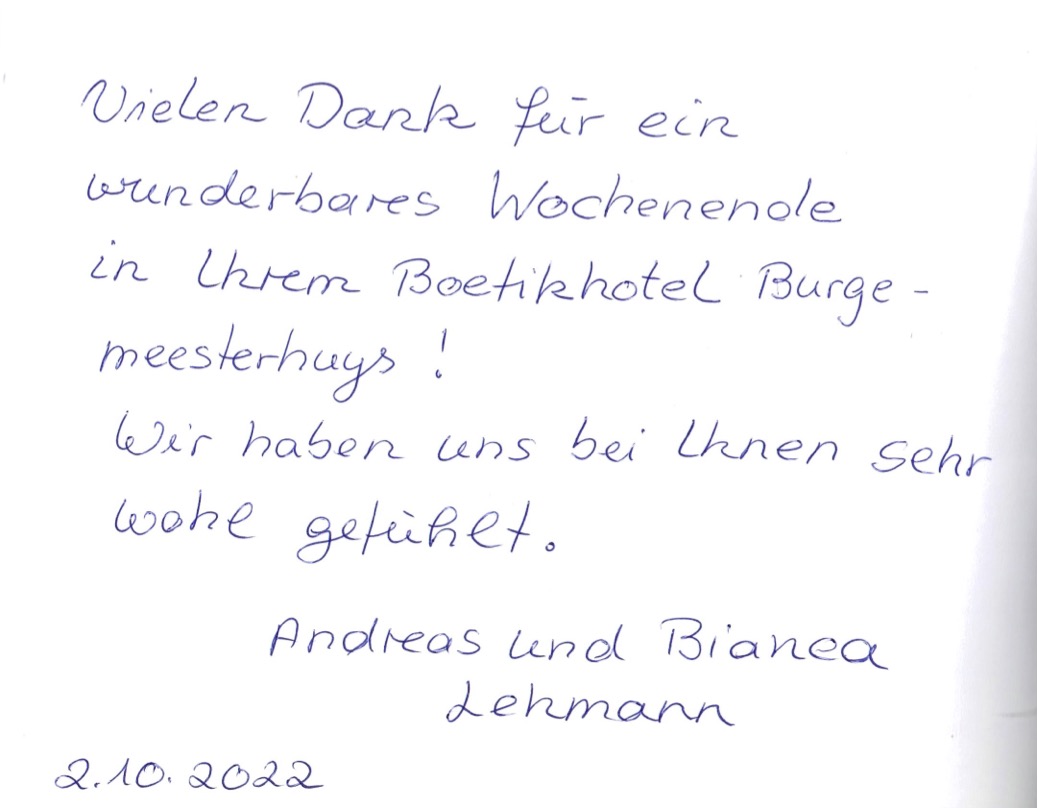 Vielen Dank für ein
wunderbares Wochenende
in Ihrem Boetikhotel Burge-
meesterhuys!
Wir haben uns bei Ihnen sehr
wohl gefühlt.
Andreas und Bianca
Lehmann
2.10.2022